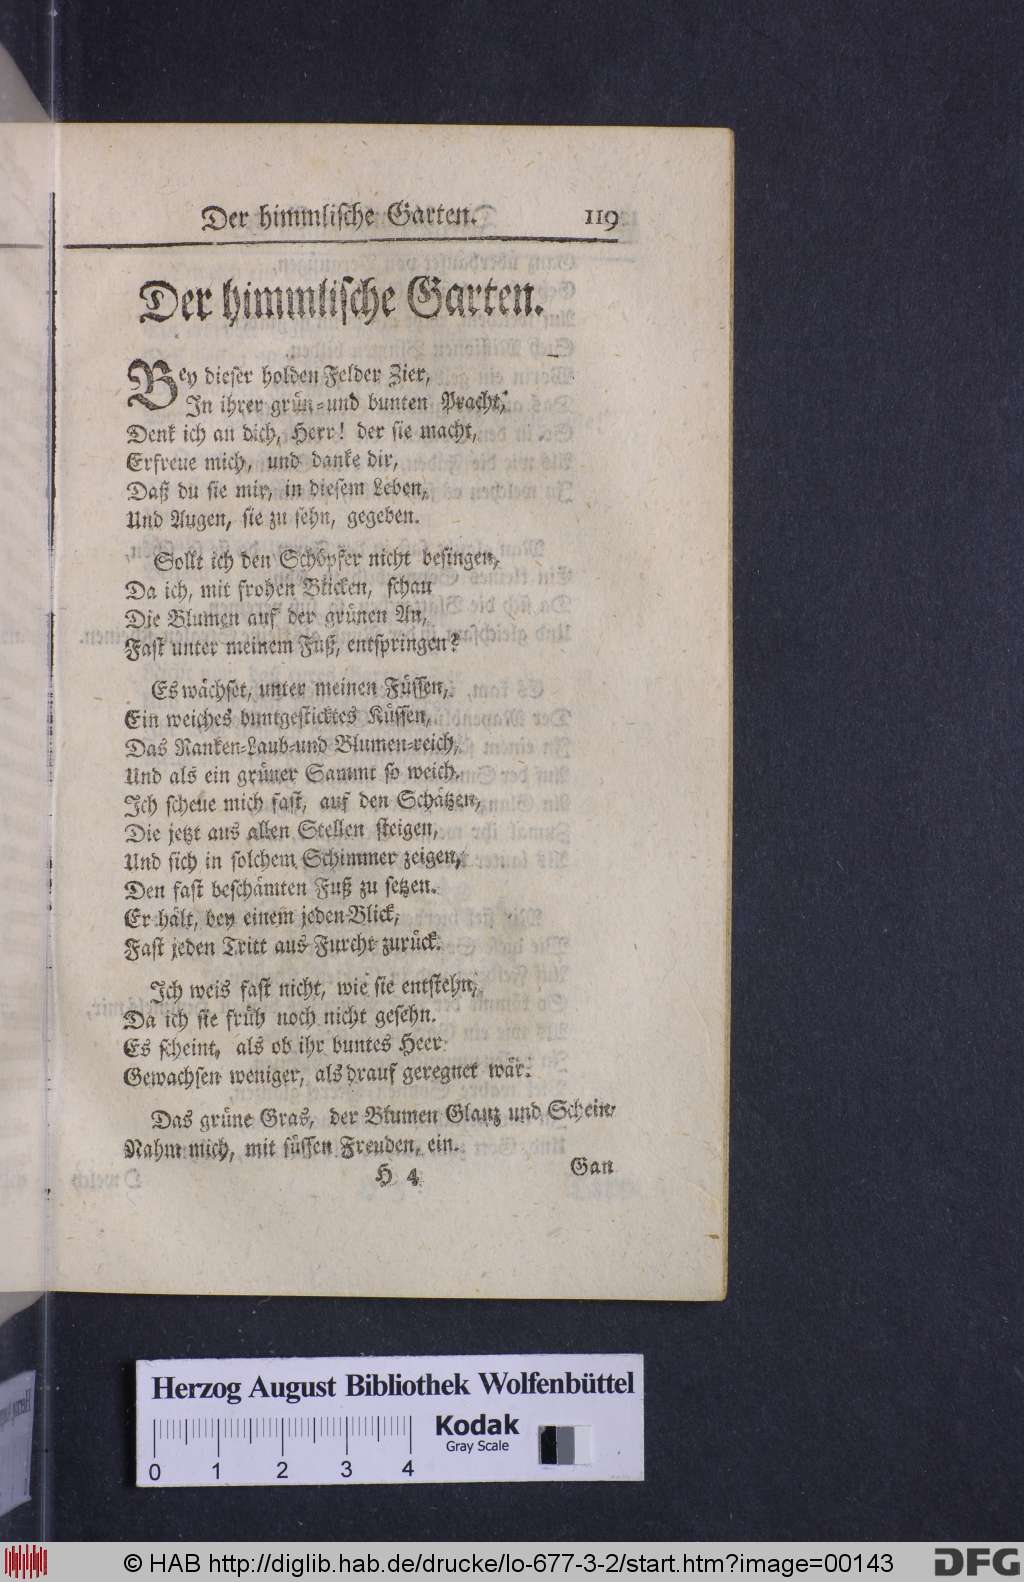 Der himmlische Garten. 119
Der himmlische Garten.
Bey dieser holden Felder Zier,
In ihrer grün- und bunten Pracht,
Denk ich an dich, Herr! der sie macht,
Erfreue mich, und danke dir,
Daß du sie mir, in diesem Leben,
Und Augen, sie zu sehn, gegeben.
Sollt ich den Schöpfer nicht besingen,
Da ich, mit frohen Blicken, schau
Die Blumen auf der grünen Au,
Fast unter meinem Fuß, entspringen?
Es wächset, unter meinen Füssen,
Ein weiches buntgesticktes Küssen,
Das Ranken-Laub- und Blumen-reich,
Und als ein grüner Sammt so weich.
Ich scheue mich fast, auf den Schätzen,
Die jetzt aus allen Stellen steigen,
Und sich in solchem Schimmer zeigen,
Den fast beschämten Fuß zu setzen.
Er hält, bey einem jeden Blick,
Fast jeden Tritt aus Furcht zurück.
Ich weis fast nicht, wie sie entstehn,
Da ich sie früh noch nicht gesehn.
Es scheint, als ob ihr buntes Heer
Gewachsen weniger, als drauf geregnet wär.
Das grüne Gras, der Blumen Glanz und Schein,
Nahm mich, mit süssen Freuden, ein.
H 4 Gan
Herzog August Bibliothek Wolfenbüttel
Kodak
Gray Scale
0 1 2 3 4
© HAB http://diglib.hab.de/drucke/lo-677-3-2/start.htm?image=00143 DFG